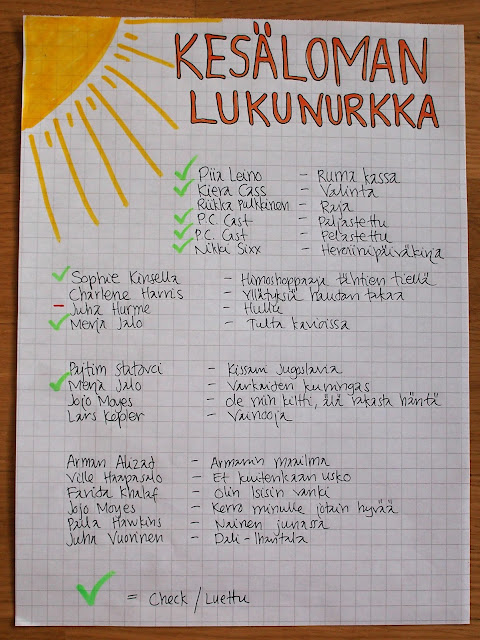 KESÄLOMAN
LUKUNURKKA
Piia Leino – Ruma kassa
Kiera Cass – Valinta
Riikka Pulkkinen – Raja
P.C. Cast – Paljastettu
P.C. Cast – Pelastettu
Nikki Sixx – Heroiinipäiväkirja
Sophie Kinsella – Himoshoppaaja tähtien tiellä
Charlene Harris – Yllätyksiä haudan takaa
Juha Hurme – Hullu
Merja Jalo – Tulta kavioissa
Pajtim Statovci – Kissani Jugoslavia
Merja Jalo – Varkaiden kuningas
Jojo Moyes – Ole niin kiltti, älä rakasta häntä
Lars Kepler – Vainooja
Arman Alizad – Armanin maailma
Ville Haapasalo – Et kuitenkaan usko
Farida Khalaf – Olin Isisin vanki
Jojo Moyes – Kerro minulle jotain hyvää
Paula Hawkins – Nainen junassa
Juha Vuorinen – Dali-Ihantala
= Check / Luettu